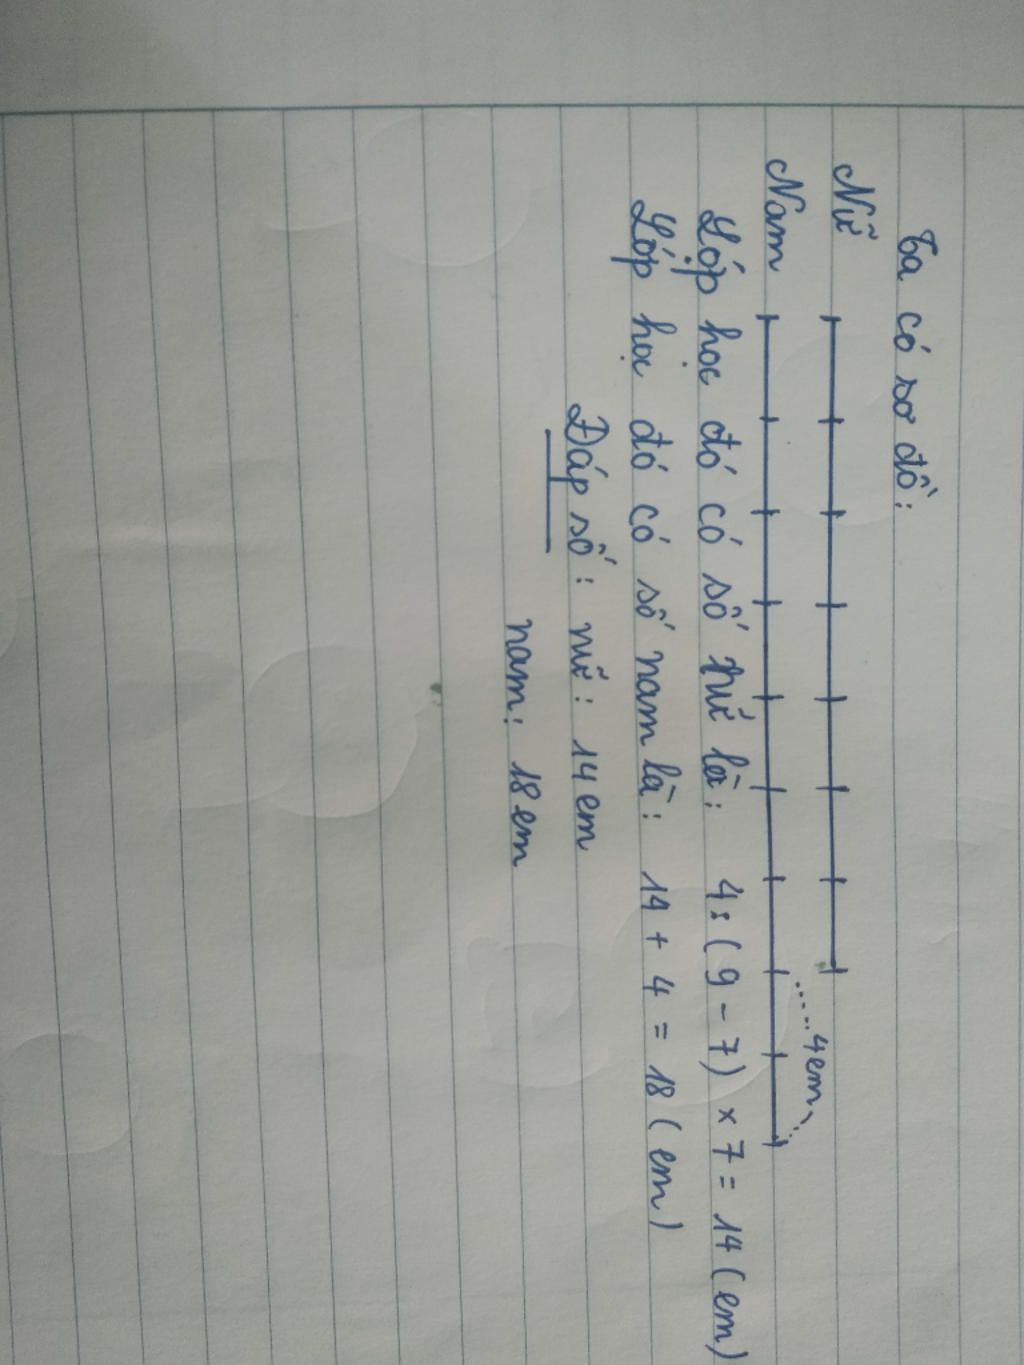 Ta có sơ đồ:
Nữ
4em
Nam
Lớp học đó có số nữ là: 4:(9-7) x 7 = 14 (em)
Lớp học đó có số nam là: 14 + 4 = 18 (em)
Đáp số: nữ: 14em
nam: 18em